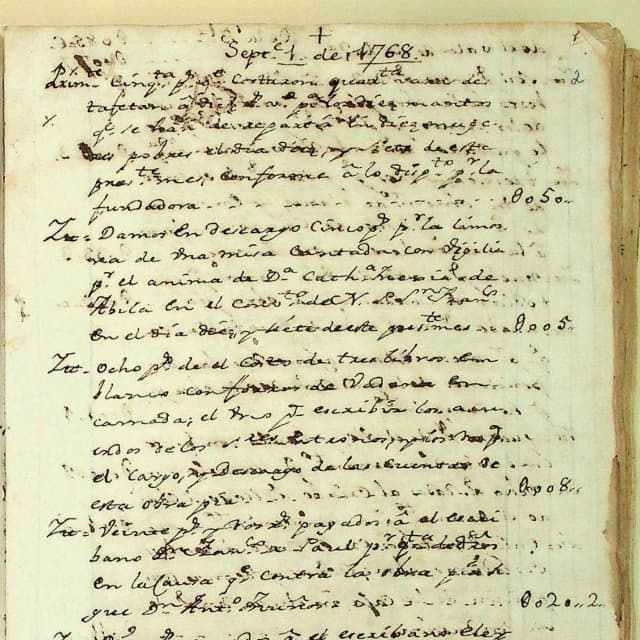 +
Septe. 1. de 1768.
2
Primte Cinqta ps. qe. Costaron quarta varas de
tafetan a diez rs. va. pa. los diez mantos
qe. se han de repartir a las diez muge-
res pobres el dia diez y siete de este
preste. mes, conforme â lo dispto. pr. la
fundadora 0050
Itt. Damos en descargo Cinco ps. pr. la limos-
na de una misa Cantada con vigilia
pr. el anima de Da. Catha. de
Abila en el Convto. de N. P. Sn. Franco.
en el dia diez y siete de este preste. mes 0005
Itt. Ocho ps. de el Costo de tres libros en
blanco con forros de Vadana en-
carnada; el uno pa. escribir los acu-
erdos de los pa.
el Cargo, y descargo de las cuentas de
esta obra pia 0008
Itt. Veinte ps. y dos rs. pagados â el escri-
bano Paul pr.
en la Causa qe. contra la obra pia si-
gue Dn. Anto. 0202
â el escribano